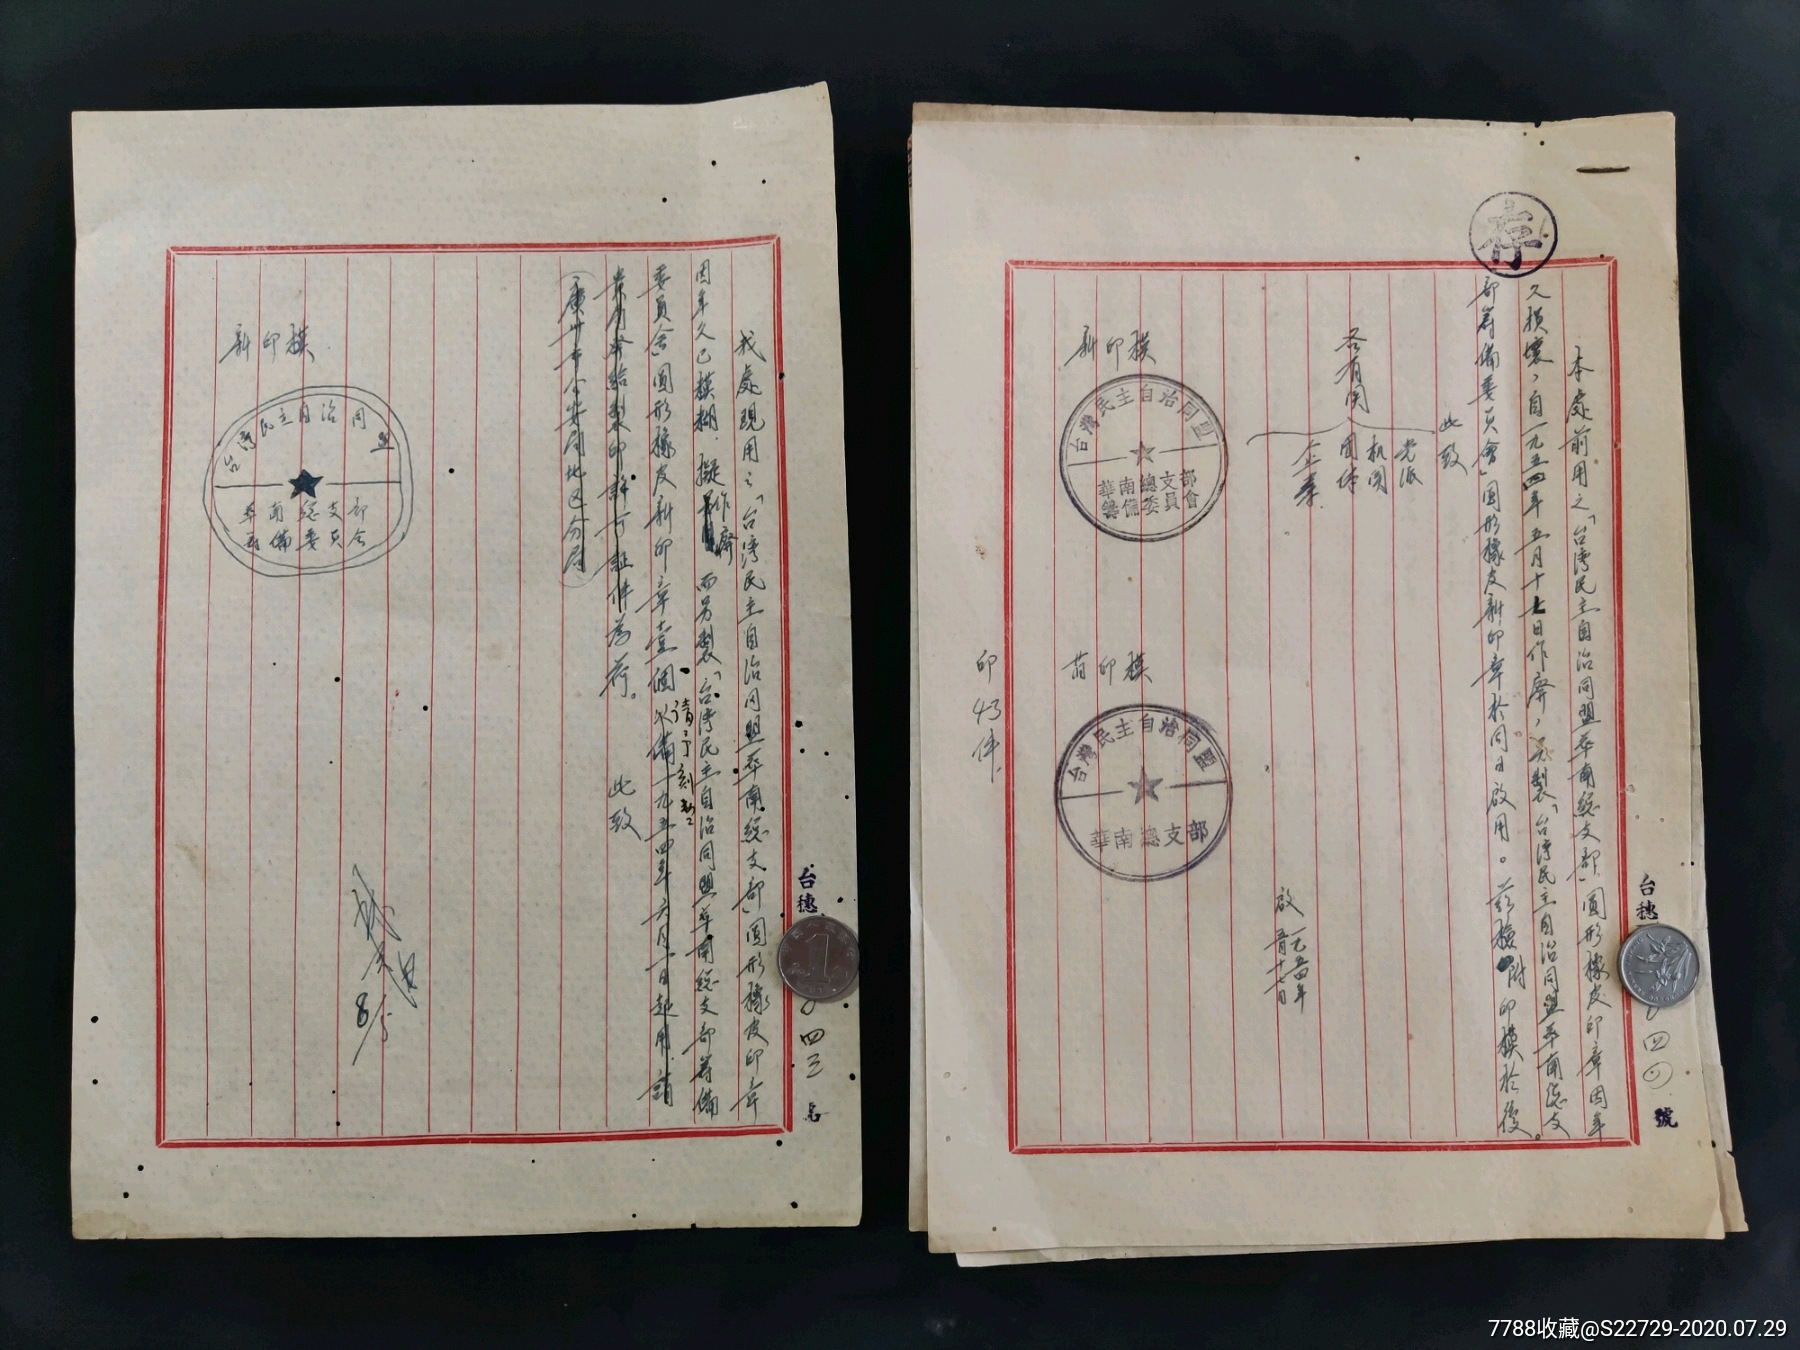 我處現用之「台湾民主自治同盟华南総支部」圓形橡皮印章
因年久已模糊，擬作廢而另製「台湾民主自治同盟华南総支部筹備
委員会」圓形橡皮新印章壹個以備一九五四年六月一日起用。請
請予刻製
貴局發給製印許可証件為荷。此致
广州市公安局地区分局
新印模
台湾民主自治同盟
华南総支部
筹備委員会
8/5
台穗
四三
存
本處前用之「台湾民主自治同盟华南総支部」圓形橡皮印章因年
久損壞，自一九五四年五月十七日作廢，另製「台湾民主自治同盟华南総支
部筹備委員會」圓形橡皮新印章於同日啟用。茲檢附印模於後。
此致
各有関
党派
机関
団体
企業
啟
一九五四年
五月十七日
新印模
台灣民主自治同盟
華南總支部
籌備委員會
旧印模
台灣民主自治同盟
華南總支部
印43件
台穗
四四
號
1
7788收藏@S22729-2020.07.29